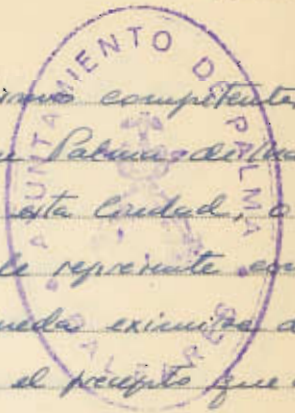 AYUNTAMIENTO DE PALMA
BALEARES
competente,
Palma de Ma
esta Ciudad, o
le represente
ueda
el precepto que